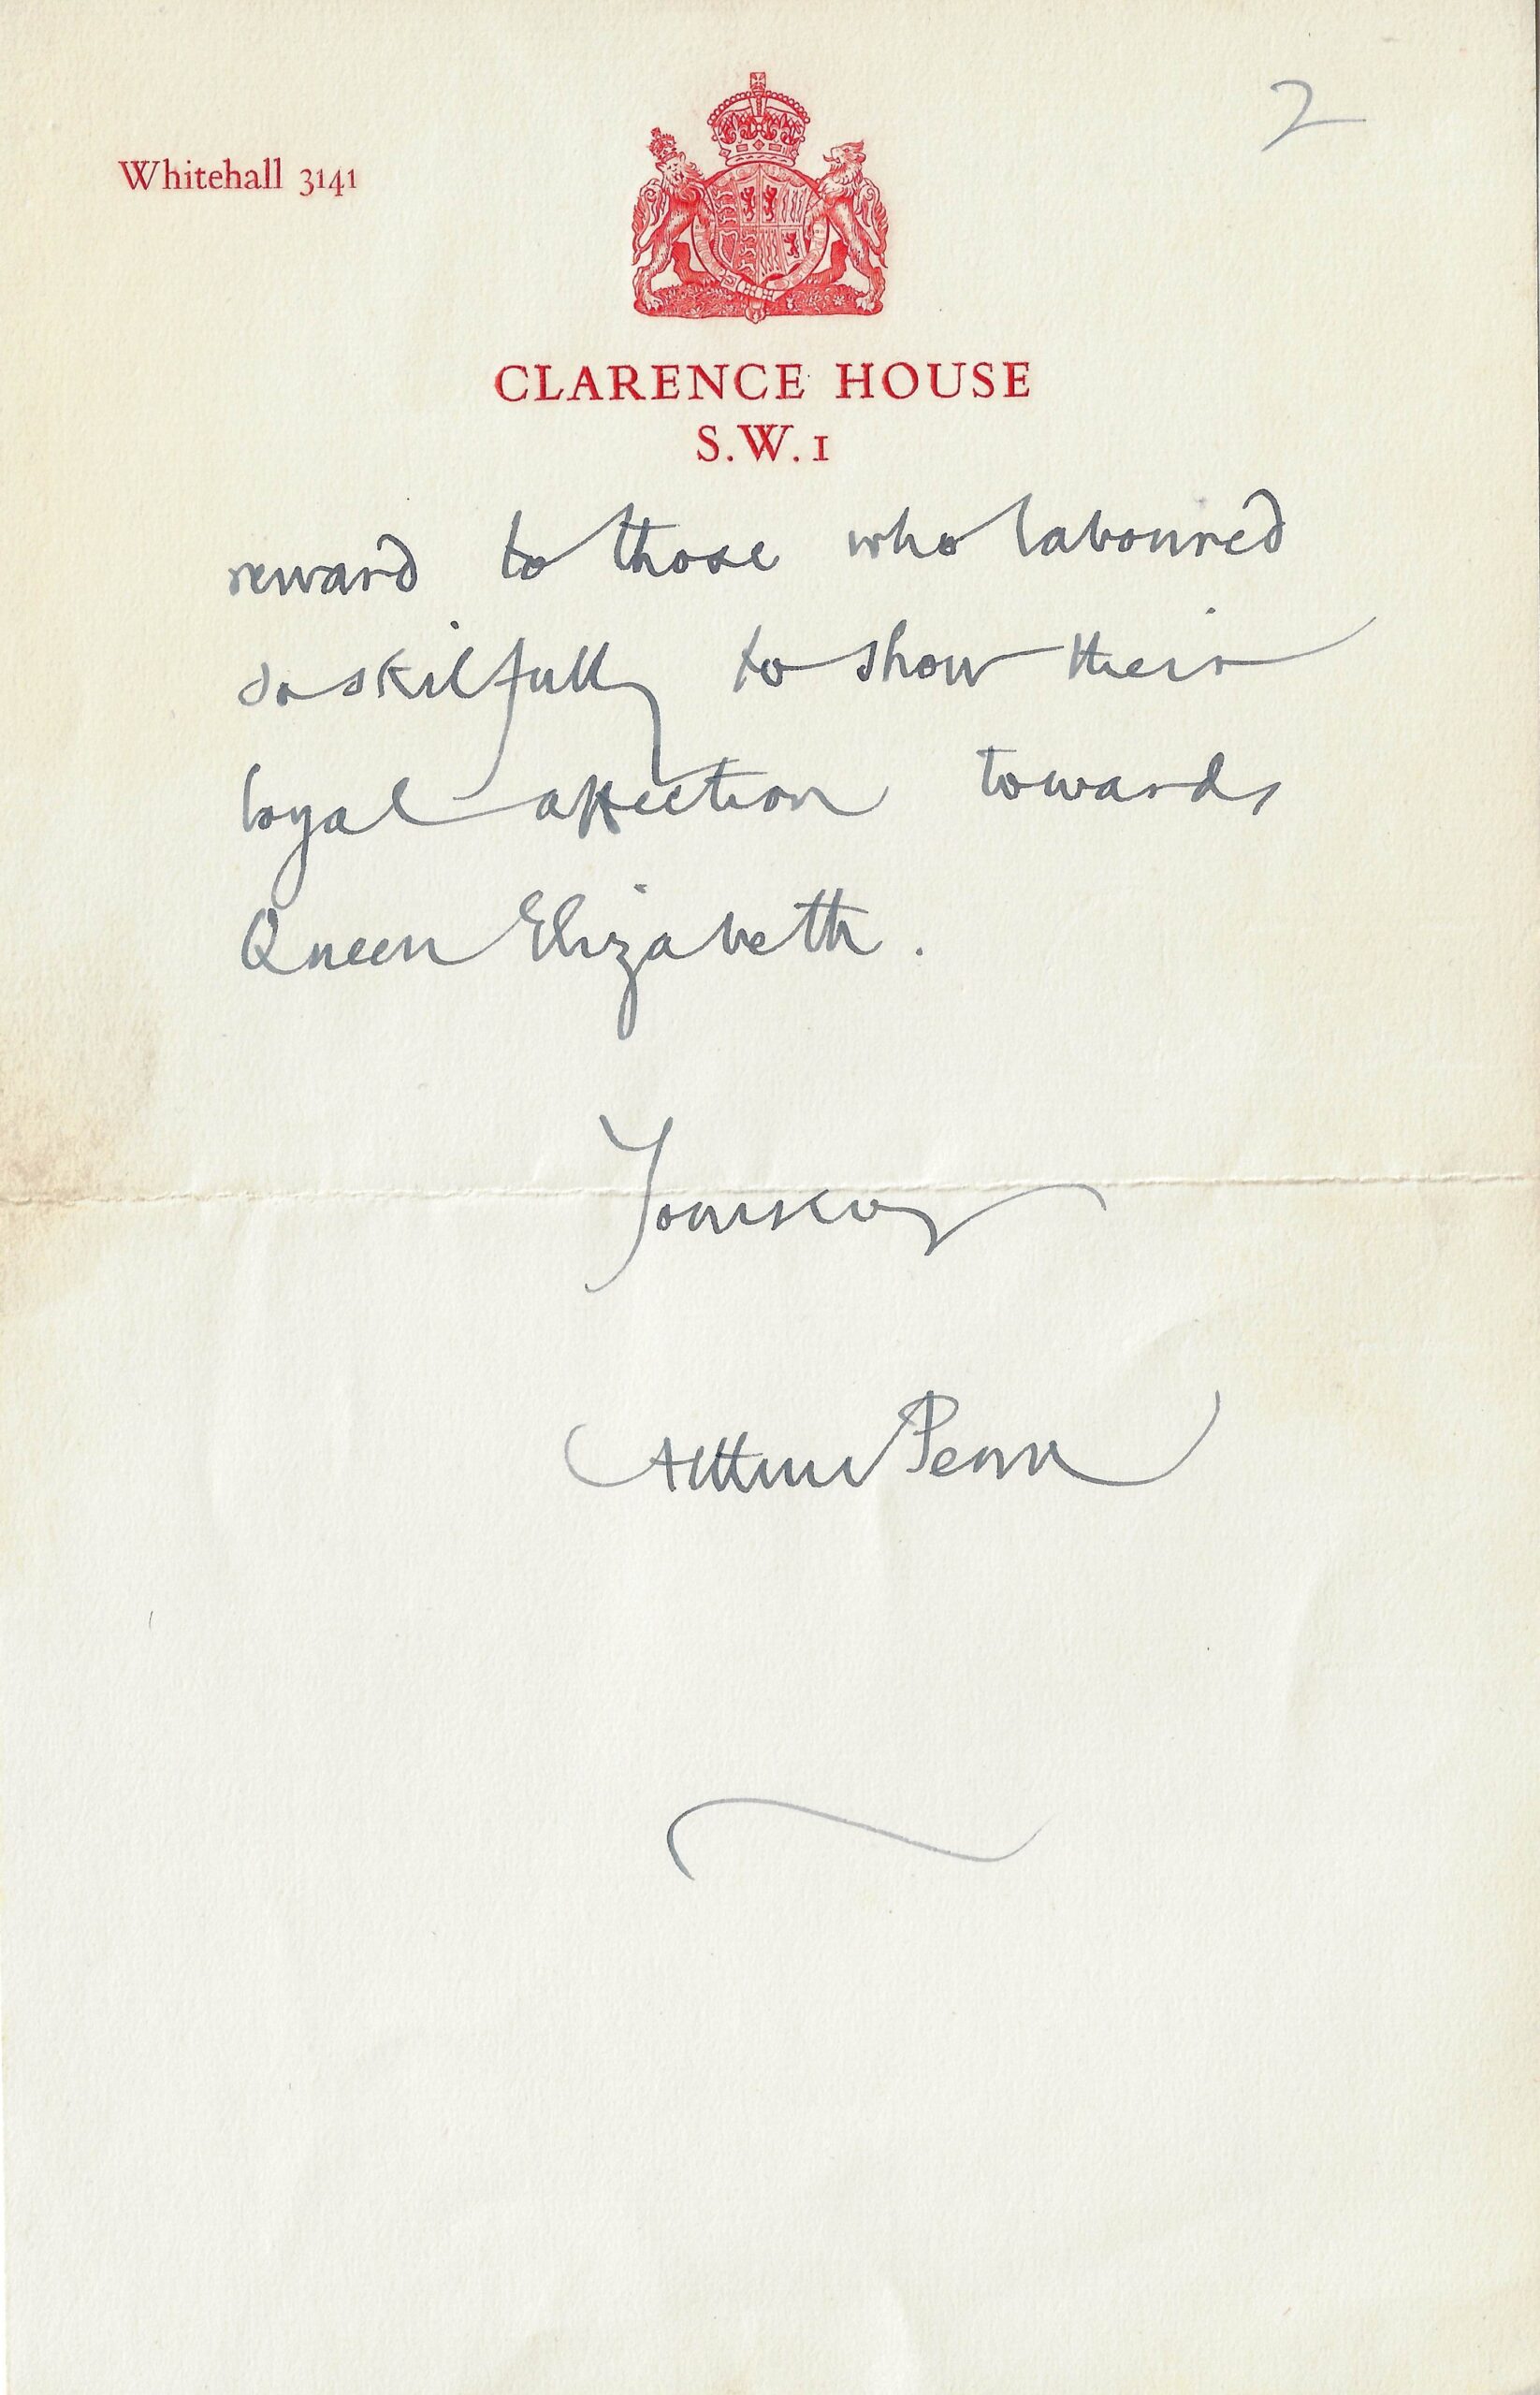 2
Whitehall 3141
CLARENCE HOUSE
S.W.1
reward to those who laboured
so skilfully to show their
loyal affection towards
Queen Elizabeth.
Arthur Penn